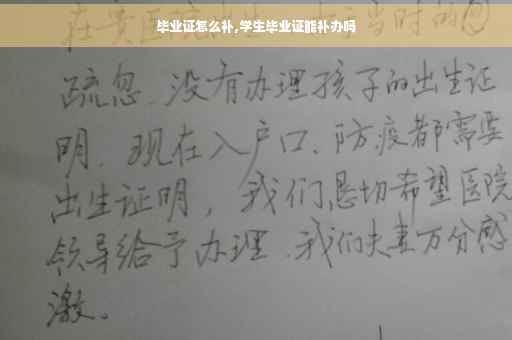 毕业证怎么补,学生毕业证能补办吗
在贵医院出生,当时的
疏忽.没有办理孩子的出生证
明.现在入户口、防疫都需要
出生证明,我们恳切希望医院
领导给予办理.我们夫妻万分感
激。